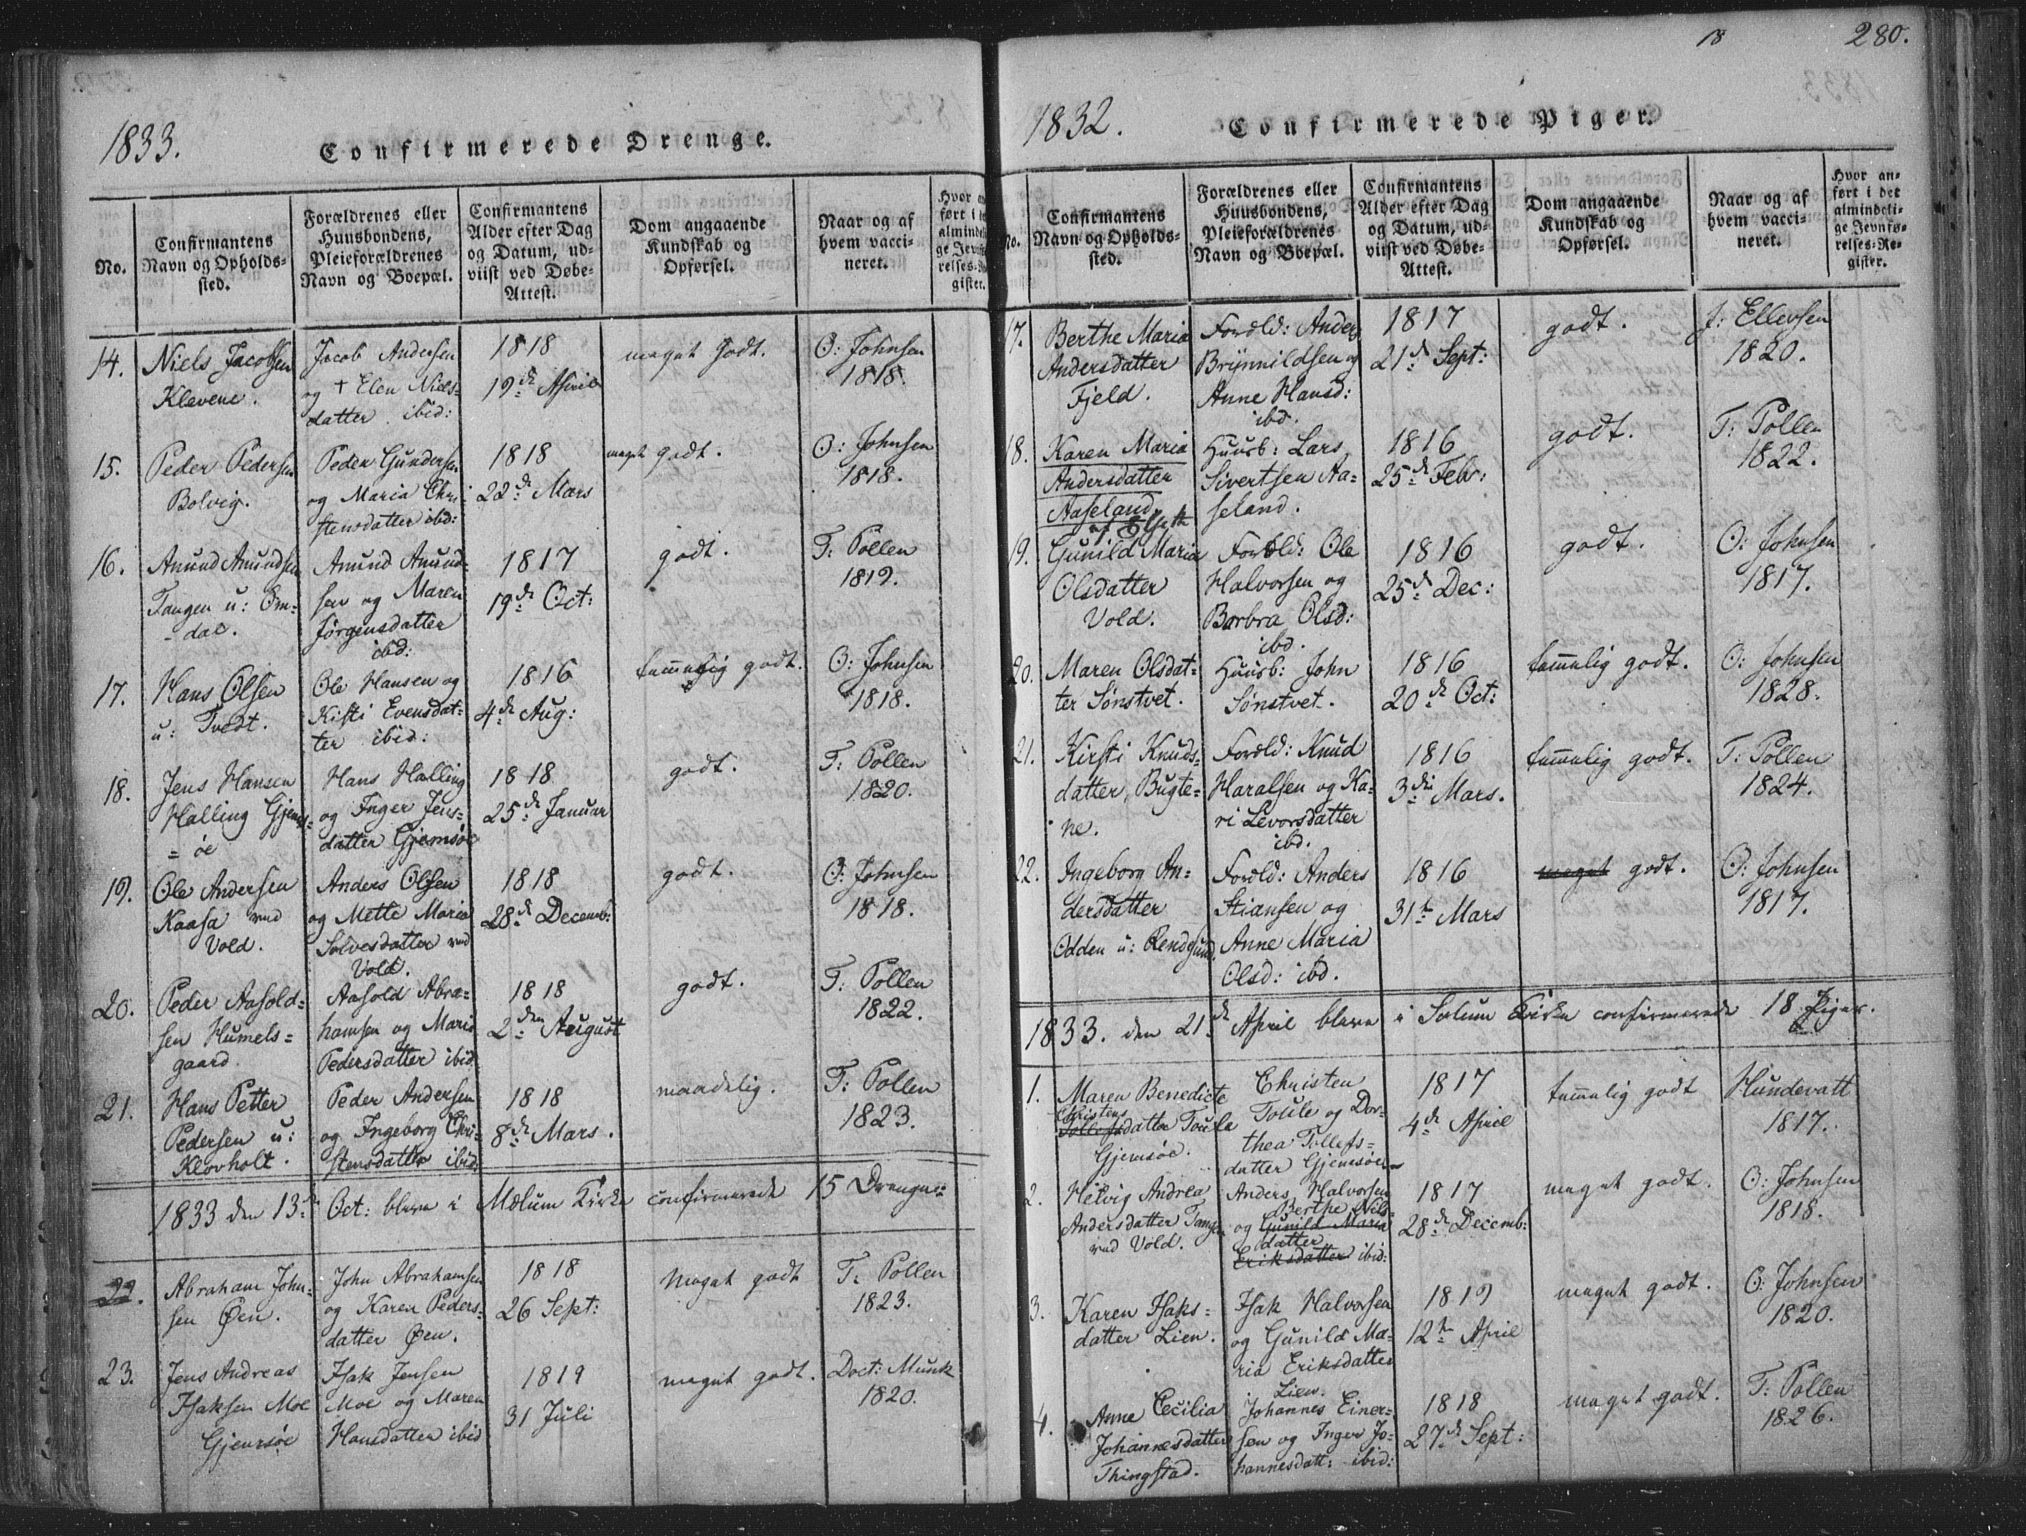 1833.
Confirmerede Drenge.
No.
Confirmantens
Navn og Opholds-
sted.
Forældrenes eller
Huusbondens,
Pleieforældrenes
Navn og Boepæl.
Confirmantens
Alder efter Dag
og Datum, ud-
viist ved Døbe-
Attest.
Dom angaaende
Kundskab og
Opførsel.
Naar og af
hvem vacci-
neret.
Hvor an-
ført i det
almindeli-
ge Jevnfø-
relses-Re-
gister.
14.
Niels Jacobsen
Klevene.
Jacob Andersen
og + Elen Niels-
datter ibid:
1818
19de April
meget Godt.
O: Johnsen
1818.
15.
Peder Pedersen
Bolvig.
Peder Gundersen
og Maria Chri-
stensdatter ibd:
1818
22de Mars
meget godt.
O: Johnsen
1818.
16.
Amund Amundsen
Tangen u: Om-
-dal.
Amund Amund-
sen og Maren
Jørgensdatter
ibd:
1817
19de Oct:
godt.
T: Pollen
1819.
17.
Hans Olsen
u: Tvedt.
Ole Hansen og
Kisti Evensdat-
ter ibid:
1816
4de Aug:
temmelig godt.
O: Johnsen
1818.
18.
Jens Hansen
Halling Gjems-
=øe
Hans Halling
og Inger Jens-
datter Gjemsøe
1818
25de Januar
godt.
T: Pollen
1820.
19.
Ole Andersen
Kaasa ved
Vold.
Anders Olsen
og Mette Maria
Solvesdatter ved
Vold.
1818
28de Decemb:
godt.
O: Johnsen
1818.
20.
Peder Aasold-
sen Humels=
gaard
Aasold Abra=
hamsen og Maria
Pedersdatter ibid
1818
2den August
godt.
T: Pollen
1822.
21.
Hans Petter
Pedersen u:
Klovholt.
Peder Andersen
og Ingeborg Chri-
stensdatter ibid:
1818
8de Mars.
maadelig.
T: Pollen
1823.
1833 den 13de Oct: bleve i Mælum Kirke confirmerede 15 Drenge:
22.
Abraham John-
sen Øen.
John Abrahamsen
og Karen Peders-
datter Øen.
1818
26 Sept:
Meget godt
T: Pollen
1823.
23.
Jens Andreas
Isaksen Moe
Gjemsøe
Isak Jensen
Moe og Maren
Hansdatter ibid
1819
31 Juli
meget godt.
Doct: Munk
1820.
18
280.
1832.
Confirmerede Piger.
No.
Confirmantens
Navn og Opholds-
sted.
Forældrenes eller
Huusbondens,
Pleieforældrenes
Navn og Boepæl.
Confirmantens
Alder efter Dag
og Datum, ud-
viist ved Døbe-
Attest.
Dom angaaende
Kundskab og
Opførsel.
Naar og af
hvem vacci-
neret.
Hvor an-
ført i det
almindeli-
ge Jevnfø-
relses-Re-
gister.
17.
Berthe Maria
Andersdatter
Fjeld.
Forold: Anders
Brynnildsen og
Anne Hansd:
ibd.
1817
21de Sept:
godt.
J: Ellevsen
1820.
18.
Karen Maria
Andersdatter
Aaseland,
Huusb: Lars
Sivertsen Aa-
seland.
1816
25de Febr:
godt.
T: Pollen
1822.
19.
Gunild Maria
Olsdatter
Vold.
Forold: Ole
Halvorsen og
Barbra Olsd:
ibd.
1816
25de Dec:
godt.
O: Johnsen
1817.
20.
Maren Olsdat-
ter Sønstvet.
Huusb: John
Sønstvet.
1816
20de Oct:
temmelig godt.
O: Johnsen
1828.
21.
Kirsti Knuds-
datter, Bugte-
ne.
Forold: Knud
Haralsen og Ka-
ri Levorsdatter
ibd.
1816
3die Mars.
temmelig godt.
T: Pollen
1824.
22.
Ingeborg An-
dersdatter
Odden u: Rendesund.
Forold: Anders
Stiansen og
Anne Maria
Olsd: ibd.
1816
31te Mars
meget godt.
O: Johnsen
1817.
1833. den 21de April bleve i Solum Kirke confirmerede 18 Piger.
1.
Maren Benedicte
Christens
datter Toule
Gjemsøe.
Christen
Toule og Dor-
thea Tollefs=
datter Gjemsøe
1817
4de April
temmelig godt
Hundevatt
1817.
2.
Helvig Andrea
Andersdatter Tangen
ved Vold.
Anders Halvorsen
Berthe Nils-
og Gunild Maria
datter
Eriksdatter ibid:
1817
28de Decemb:
meget godt.
O: Johnsen
1818.
3.
Karen Isaks=
datter Lien.
Isak Halvorsen
og Gunild Ma-
ria Eriksdatter
Lien.
1819
12te April
meget godt.
O: Johnsen
1820.
4.
Anne Cecilia
Johannesdatter
Thingstad.
Johannes Einer-
sen og Inger Jo-
hannesdatt: ibid:
1818
27de Sept:
meget godt.
T: Pollen
1826.